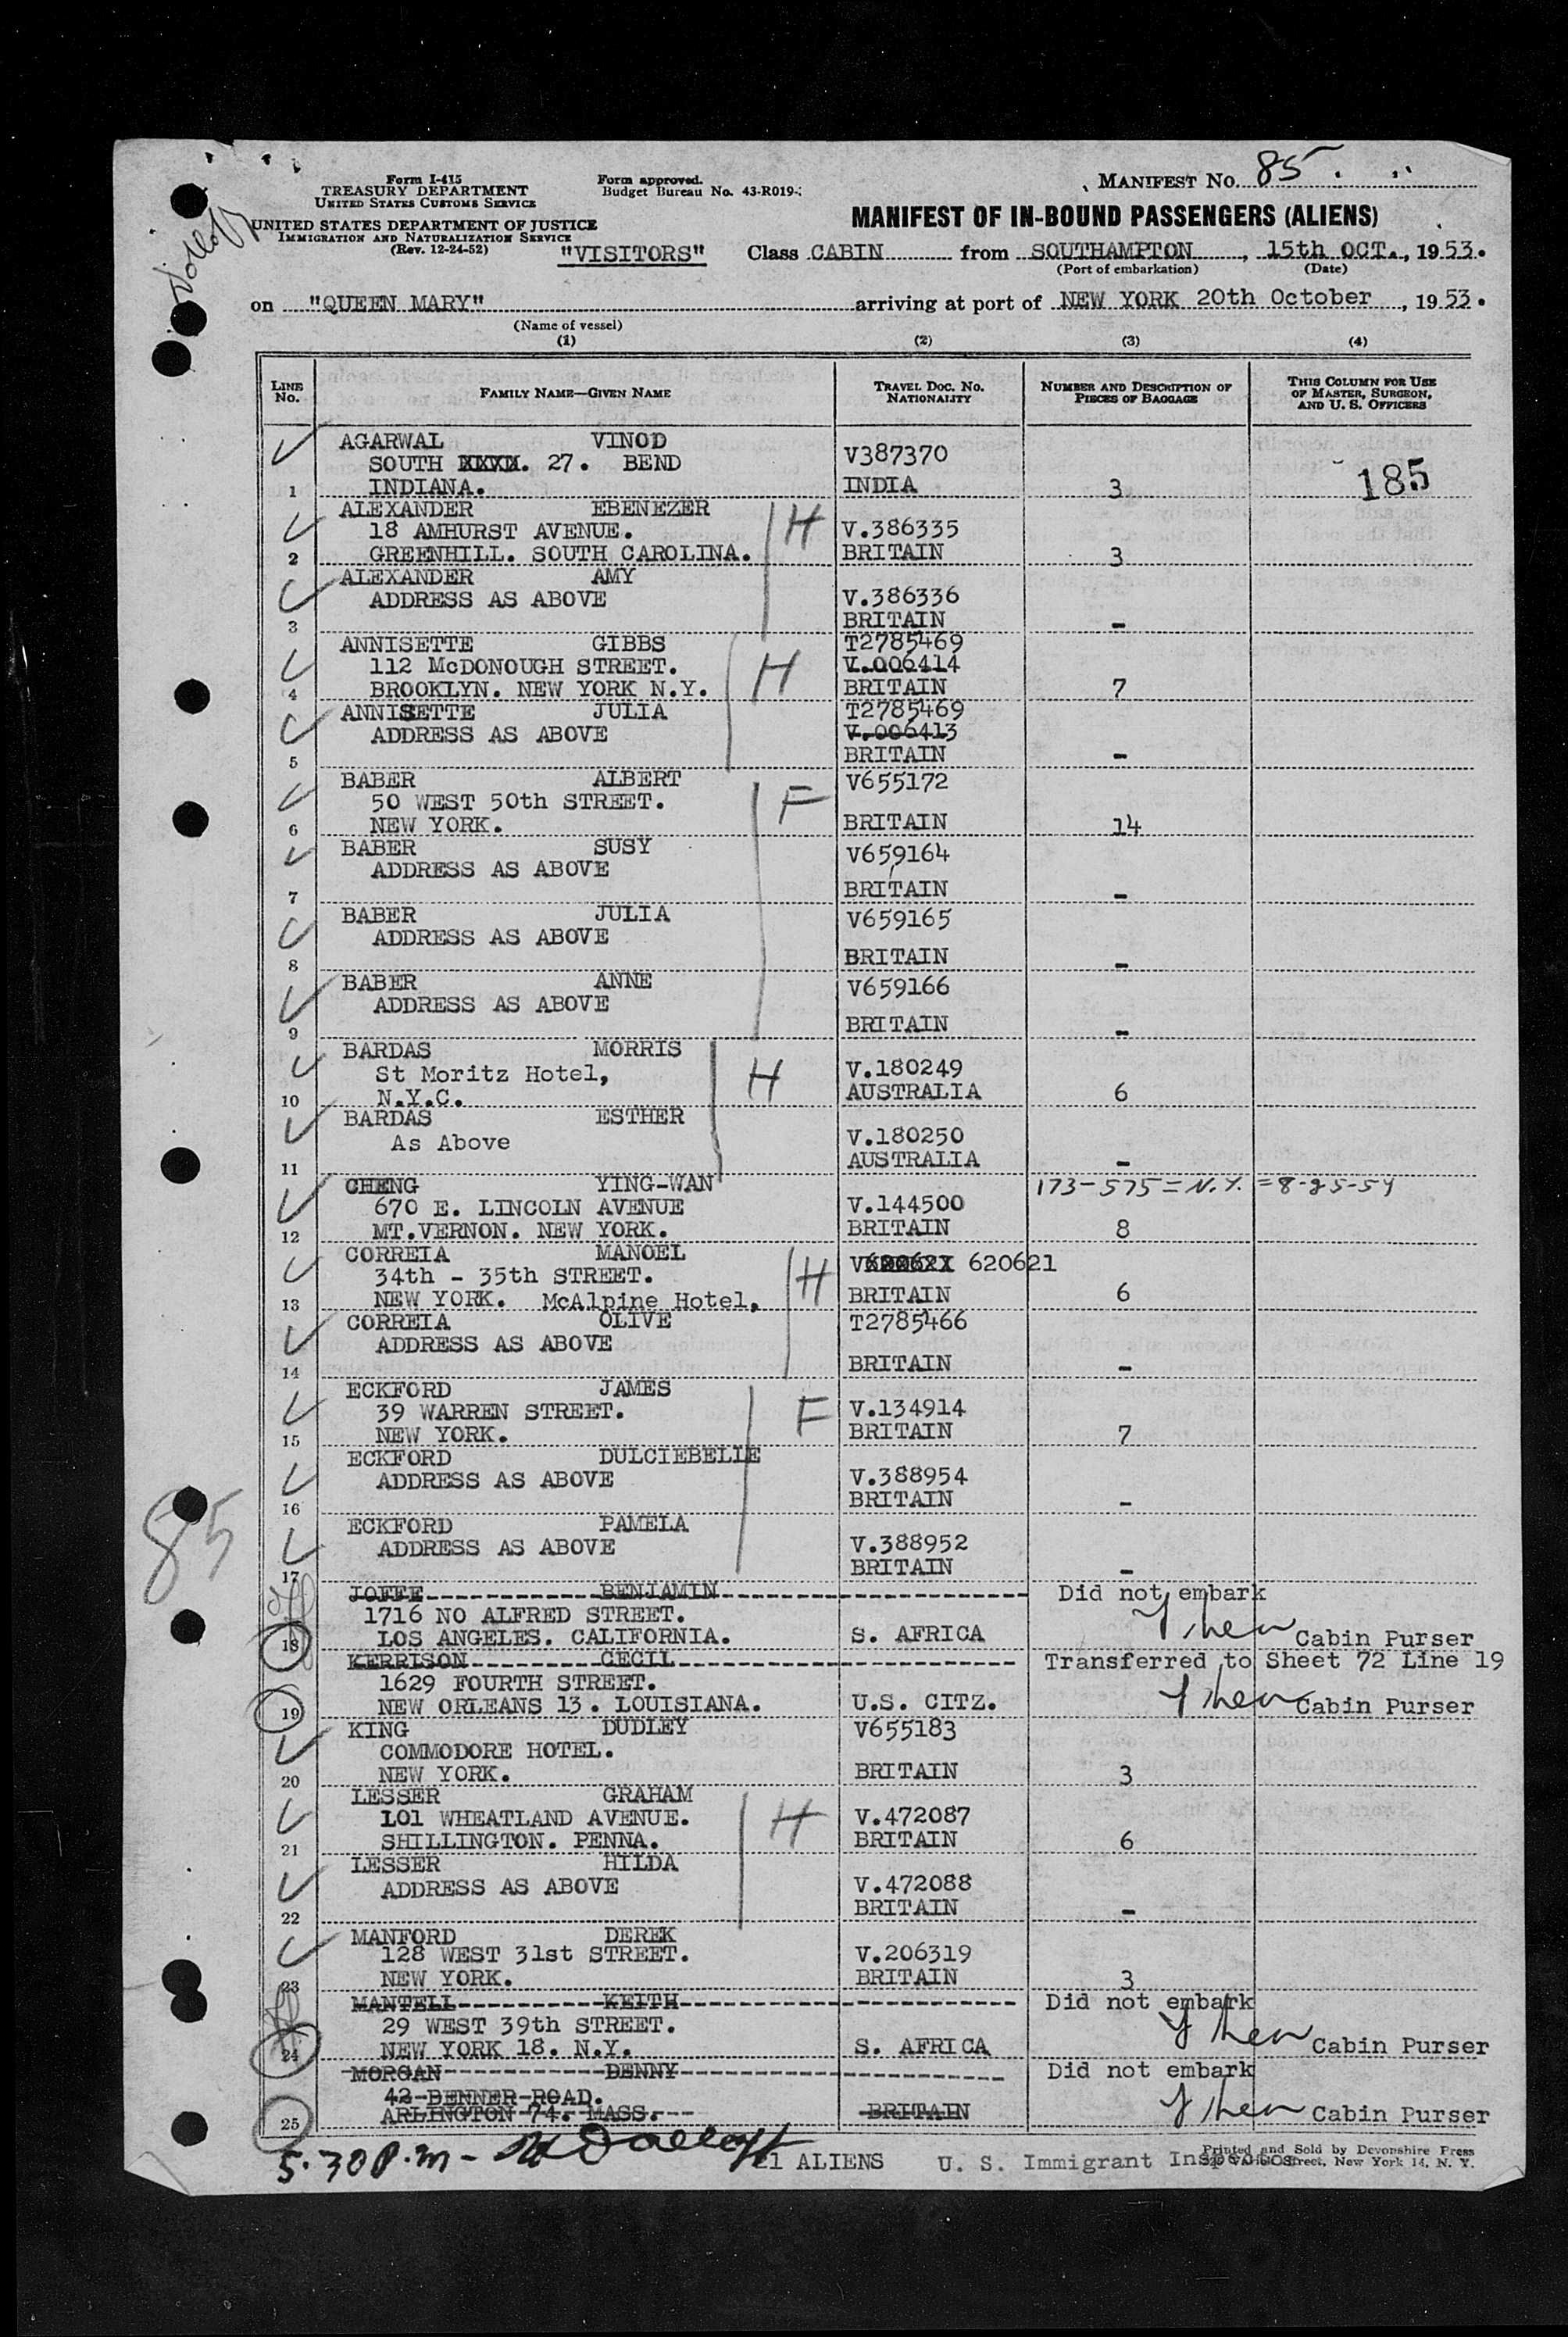 Form I-415
TREASURY DEPARTMENT
UNITED STATES CUSTOMS SERVICE
UNITED STATES DEPARTMENT OF JUSTICE
IMMIGRATION AND NATURALIZATION SERVICE
(Rev. 12-24-52)
Form approved.
Budget Bureau No. 43-R019-
MANIFEST NO. 85.
MANIFEST OF IN-BOUND PASSENGERS (ALIENS)
"VISITORS" Class CABIN from SOUTHAMPTON, 15th OCT., 1953.
(Port of embarkation) (Date)
on "QUEEN MARY" arriving at port of NEW YORK 20th October, 1953.
(Name of vessel)
(1) (2) (3) (4)
LINE No. FAMILY NAME—GIVEN NAME TRAVEL DOC. NO. NATIONALITY NUMBER AND DESCRIPTION OF PIECES OF BAGGAGE THIS COLUMN FOR USE OF MASTER, SURGEON, AND U. S. OFFICERS
AGARWAL VINOD
SOUTH 27. BEND V387370
1 INDIANA. INDIA 3 185
ALEXANDER EBENEZER H
18 AMHURST AVENUE. V.386335
2 GREENHILL. SOUTH CAROLINA. BRITAIN 3
ALEXANDER AMY
ADDRESS AS ABOVE V.386336
3 BRITAIN -
ANNISETTE GIBBS T2785469
112 McDONOUGH STREET. H V.006414
4 BROOKLYN. NEW YORK N.Y. BRITAIN 7
ANNISETTE JULIA T2785469
ADDRESS AS ABOVE V.006413
5 BRITAIN -
BABER ALBERT V655172
50 WEST 50th STREET. F
6 NEW YORK. BRITAIN 14
BABER SUSY V659164
ADDRESS AS ABOVE
7 BRITAIN -
BABER JULIA V659165
ADDRESS AS ABOVE
8 BRITAIN -
BABER ANNE V659166
ADDRESS AS ABOVE
9 BRITAIN -
BARDAS MORRIS
St Moritz Hotel, H V.180249
10 N.Y.C. AUSTRALIA 6
BARDAS ESTHER
As Above V.180250
11 AUSTRALIA -
CHENG YING-WAN 173-575=N.Y. =8-25-54
670 E. LINCOLN AVENUE V.144500
12 MT.VERNON. NEW YORK. BRITAIN 8
CORREIA MANOEL V 620621
34th - 35th STREET. H
13 NEW YORK. McAlpine Hotel, BRITAIN 6
CORREIA OLIVE T2785466
ADDRESS AS ABOVE
14 BRITAIN -
ECKFORD JAMES
39 WARREN STREET. F V.134914
15 NEW YORK. BRITAIN 7
ECKFORD DULCIEBELLE
ADDRESS AS ABOVE V.388954
16 BRITAIN -
ECKFORD PAMELA
ADDRESS AS ABOVE V.388952
85
17 BRITAIN -
JOFFE BENJAMIN Did not embark
1716 NO ALFRED STREET.
18 LOS ANGELES. CALIFORNIA. S. AFRICA Cabin Purser
KERRISON CECIL Transferred to Sheet 72 Line 19
1629 FOURTH STREET.
19 NEW ORLEANS 13. LOUISIANA. U.S. CITZ. Cabin Purser
KING DUDLEY V655183
COMMODORE HOTEL.
20 NEW YORK. BRITAIN 3
LESSER GRAHAM
101 WHEATLAND AVENUE. H V.472087
21 SHILLINGTON. PENNA. BRITAIN 6
LESSER HILDA
ADDRESS AS ABOVE V.472088
22 BRITAIN -
MANFORD DEREK
128 WEST 31st STREET. V.206319
23 NEW YORK. BRITAIN 3
MANTELL KEITH Did not embark
29 WEST 39th STREET.
24 NEW YORK 18. N.Y. S. AFRICA Cabin Purser
MORGAN DENNY Did not embark
42 DENNER ROAD.
25 ARLINGTON 74. MASS. BRITAIN Cabin Purser
5.30 P.M - 21 ALIENS U. S. Immigrant Inspector
Printed and Sold by Devonshire Press
Street, New York 14, N. Y.